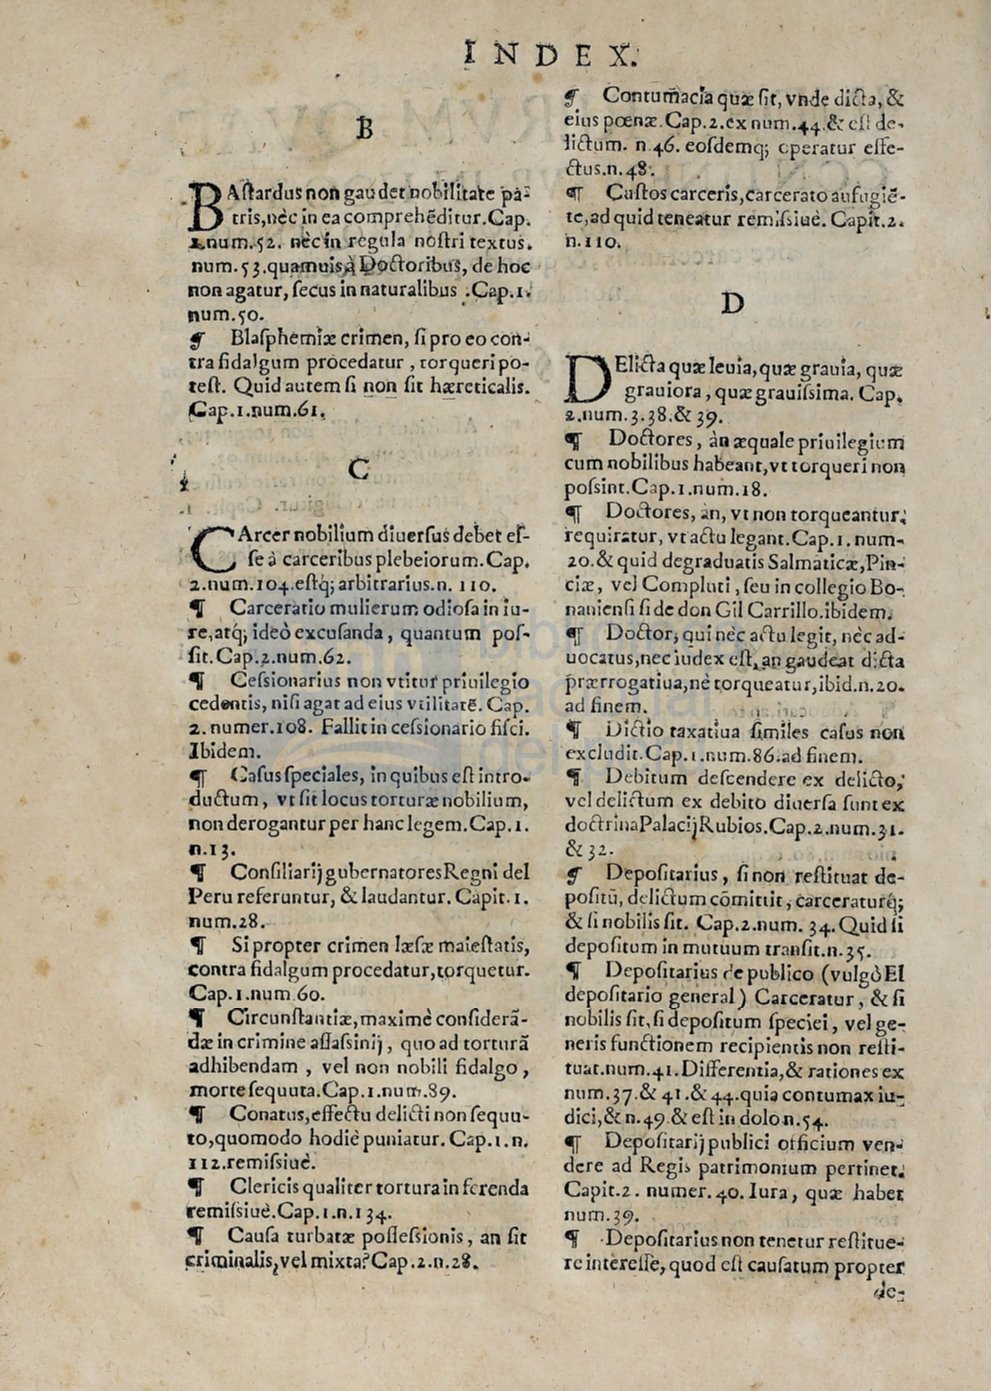 INDEX.
B
BAſtardus non gaudet nobilitate pa-
tris, nèc in ea comprehẽditur. Cap.
1. num. 52. nèc in regula noſtri textus.
num. 53. quamuis à Doctoribus, de hoc
non agatur, ſecus in naturalibus. Cap. 1.
num. 50.
¶ Blaſphemiæ crimen, ſi pro eo con-
tra fidalgum procedatur, torqueri po-
teſt. Quid autem ſi non ſit hæreticalis.
Cap. 1. num. 61.
C
CArcer nobilium diuerſus debet eſ-
ſe à carceribus plebeiorum. Cap.
2. num. 104. eſtq; arbitrarius. n. 110.
¶ Carceratio mulierum odioſa in iu-
re, atq; ideò excuſanda, quantum poſ-
ſit. Cap. 2. num. 62.
¶ Ceſsionarius non vtitur priuilegio
cedentis, niſi agat ad eius vtilitatẽ. Cap.
2. numer. 108. Fallit in ceſsionario fiſci.
Ibidem.
¶ Caſus ſpeciales, in quibus eſt intro-
ductum, vt ſit locus torturæ nobilium,
non derogantur per hanc legem. Cap. 1.
n. 13.
¶ Conſiliarij gubernatores Regni del
Peru referuntur, & laudantur. Capit. 1.
num. 28.
¶ Si propter crimen læſæ maieſtatis,
contra fidalgum procedatur, torquetur.
Cap. 1. num. 60.
¶ Circunſtantiæ, maximè conſiderã-
dæ in crimine aſſaſsinij, quo ad torturã
adhibendam, vel non nobili fidalgo,
morte ſequuta. Cap. 1. num. 89.
¶ Conatus, effectu delicti non ſequu-
to, quomodo hodiè puniatur. Cap. 1. n.
112. remiſsiuè.
¶ Clericis qualiter tortura inferenda
remiſsiuè. Cap. 1. n. 134.
¶ Cauſa turbatæ poſſeſsionis, an ſit
criminalis, vel mixta? Cap. 2. n. 28.
¶ Contumacia quæ ſit, vnde dicta, &
eius pœnæ. Cap. 2. ex num. 44. & eſt de-
lictum. n. 46. eoſdemq; operatur effe-
ctus. n. 48.
¶ Cuſtos carceris, carcerato aufugiẽ-
te, ad quid teneatur remiſsiuè. Capit. 2.
n. 110.
D
DElicta quæ leuia, quæ grauia, quæ
grauiora, quæ grauiſsima. Cap.
2. num. 3. 38. & 39.
¶ Doctores, àn æquale priuilegium
cum nobilibus habeant, vt torqueri non
poſsint. Cap. 1. num. 18.
¶ Doctores, an, vt non torqueantur,
requiratur, vt actu legant. Cap. 1. num.
20. & quid de graduatis Salmaticæ, Pin-
ciæ, vel Compluti, ſeu in collegio Bo-
nanienſi ſide don Gil Carrillo. ibidem.
¶ Doctor, qui nèc actu legit, nèc ad-
uocatus, nec iudex eſt, an gaudeat dicta
prærrogatiua, nè torqueatur, ibid. n. 20.
ad finem.
¶ Dictio taxatiua ſimiles caſus non
excludit. Cap. 1. num. 86. ad finem.
¶ Debitum deſcendere ex delicto,
vel delictum ex debito diuerſa ſunt ex
doctrina Palacij Rubios. Cap. 2. num. 31.
& 32.
¶ Depoſitarius, ſi non reſtituat de-
poſitũ, delictum cõmittit, carceraturq;
& ſi nobilis ſit. Cap. 2. num. 34. Quid ſi
depoſitum in mutuum tranſit. n. 35.
¶ Depoſitarius de publico (vulgò El
depoſitario general) Carceratur, & ſi
nobilis ſit, ſi depoſitum ſpeciei, vel ge-
neris functionem recipientis non reſti-
tuat. num. 41. Differentia, & rationes ex
num. 37. & 41. & 44. quia contumax iu-
dici, & n. 49. & eſt in dolo n. 54.
¶ Depoſitarij publici officium ven-
dere ad Regis patrimonium pertinet.
Capit. 2. numer. 40. Iura, quæ habet
num. 39.
¶ Depoſitarius non tenetur reſtitue-
re intereſſe, quod eſt cauſatum propter
de-